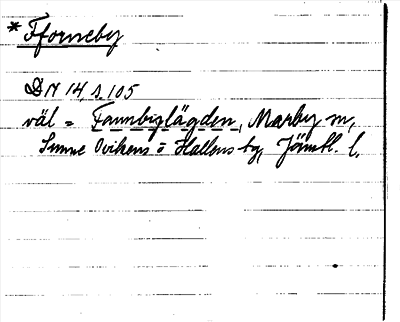 * Fforneby
DN 14, s. 105
väl = Fannbyslägden, Marby sn,
Sunne Ovikens o Hallens tg, Jämtl. l.